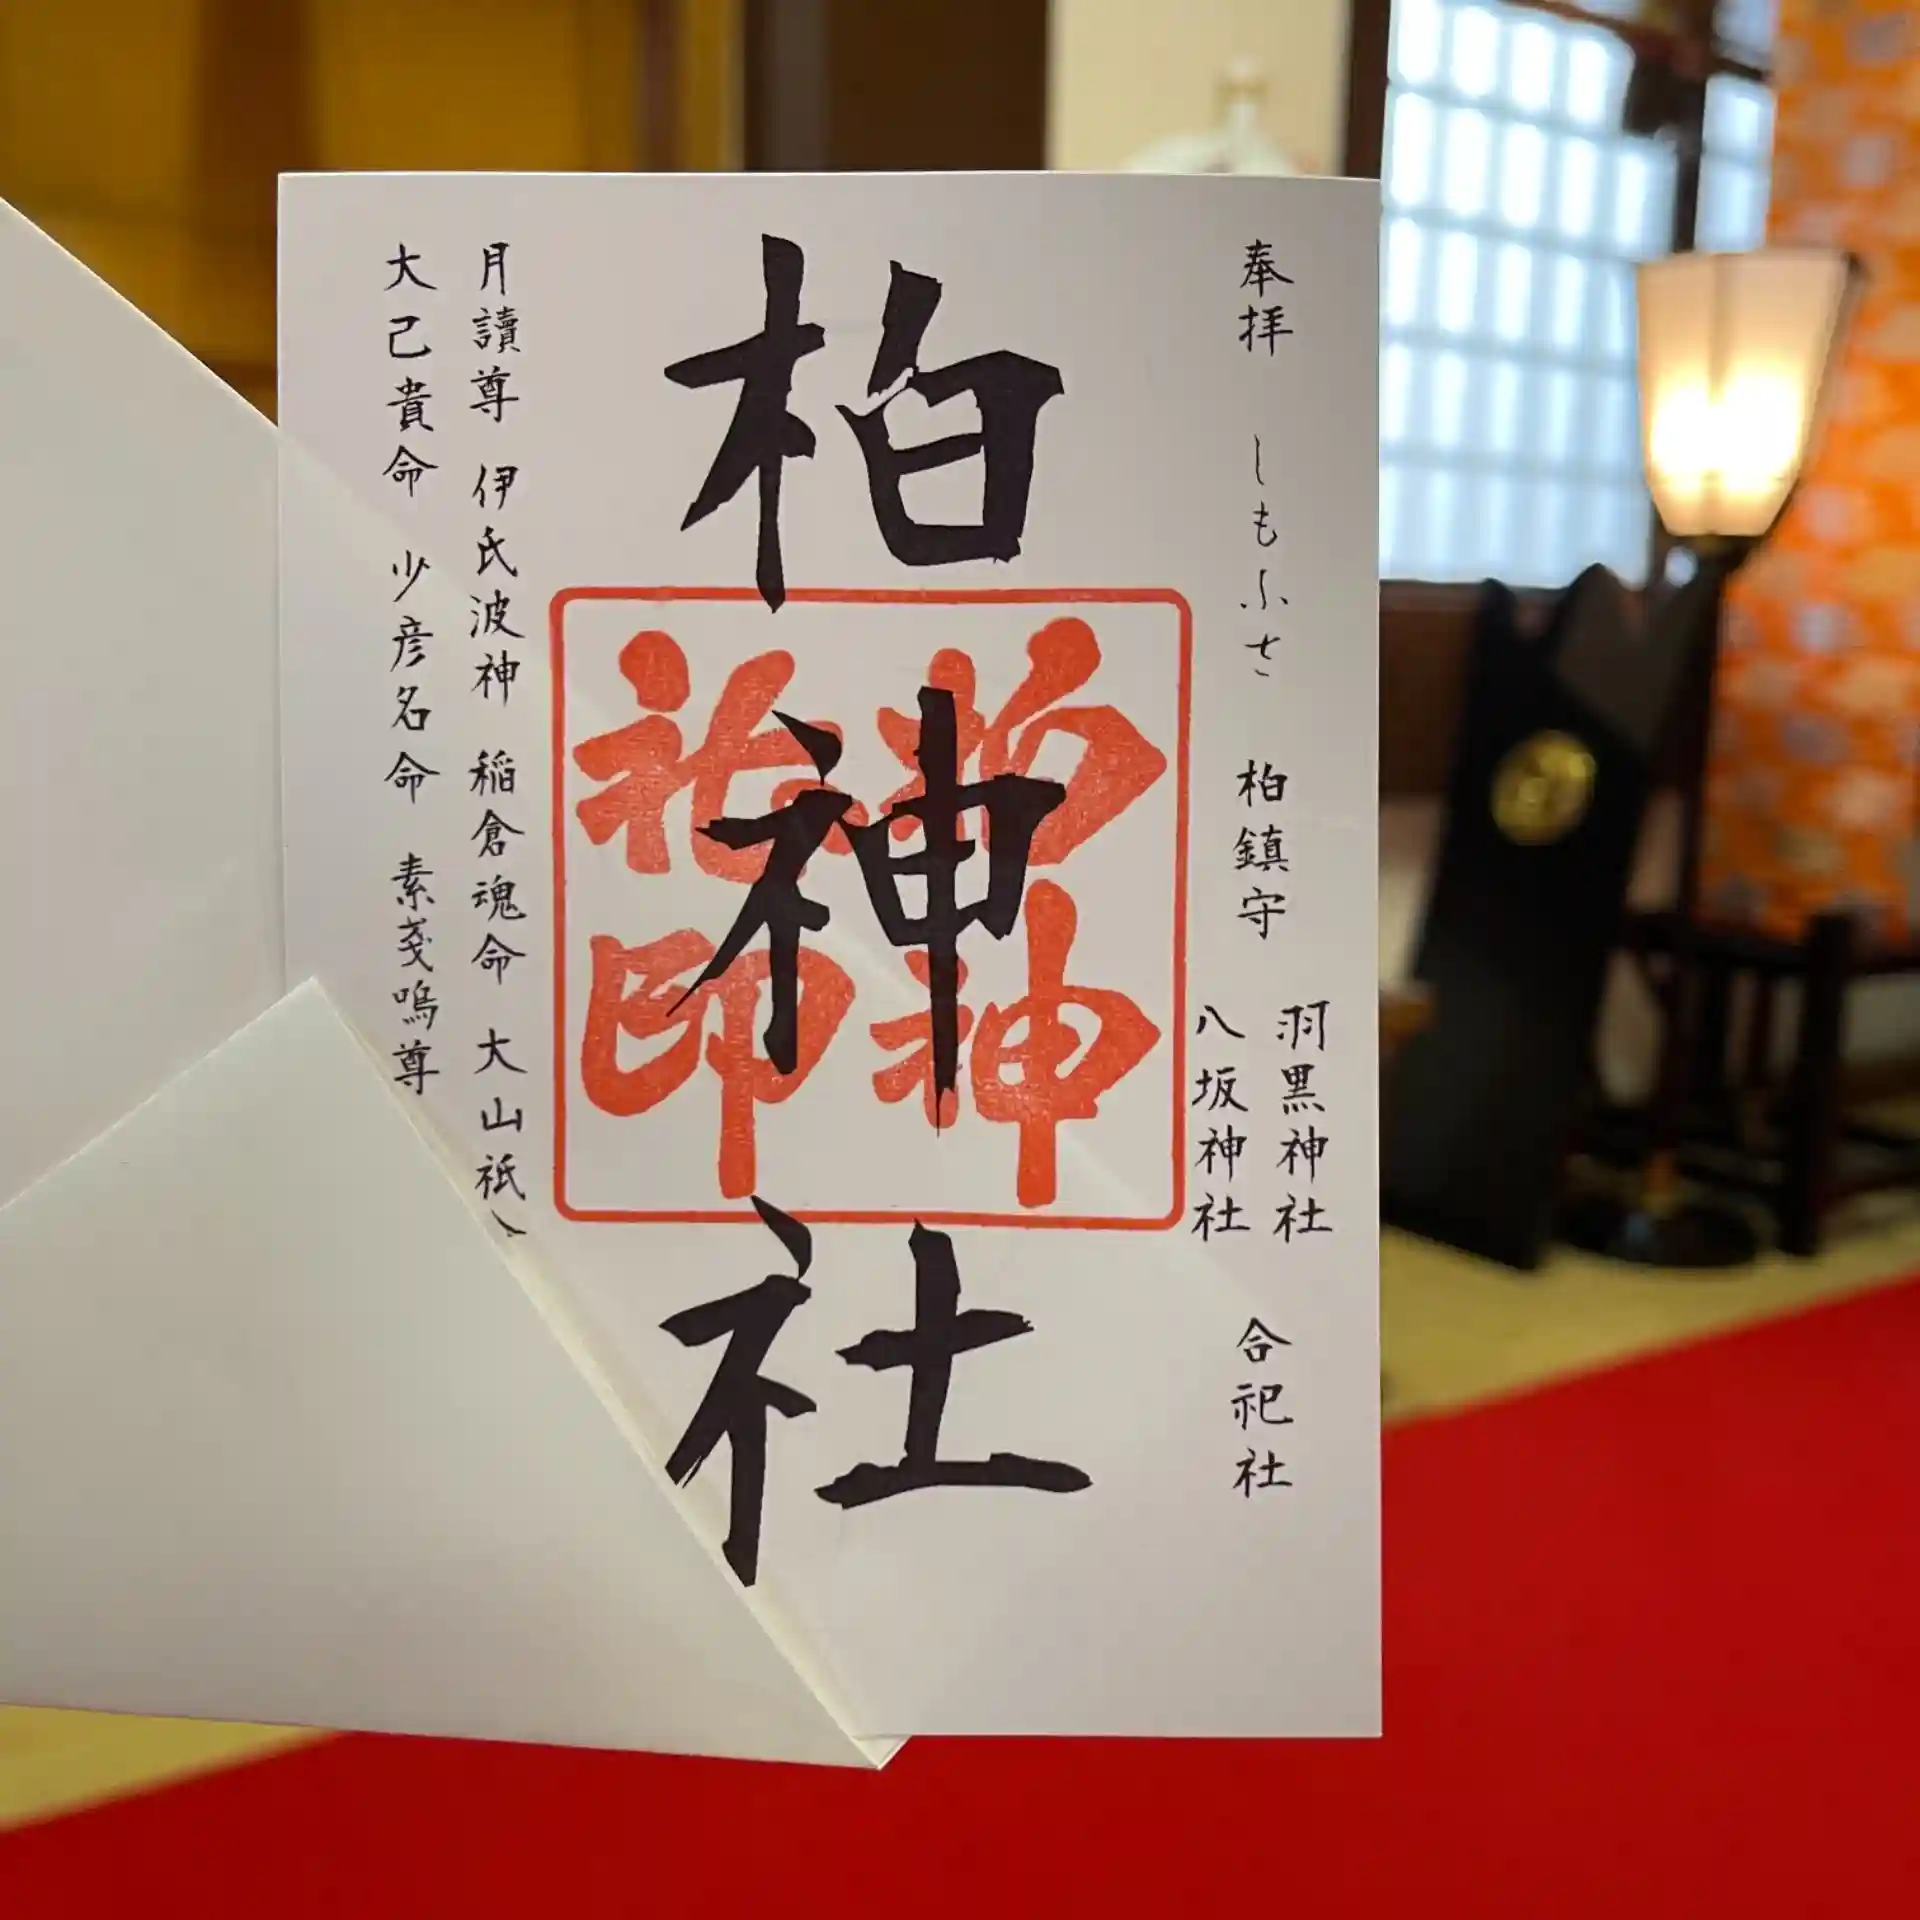 奉拝 しもふさ 柏鎮守 羽黒神社
八坂神社 合祀社
柏神社
柏神社印
月讀尊 伊氏波神 稲倉魂命 大山祇
大己貴命 少彦名命 素戔嗚尊